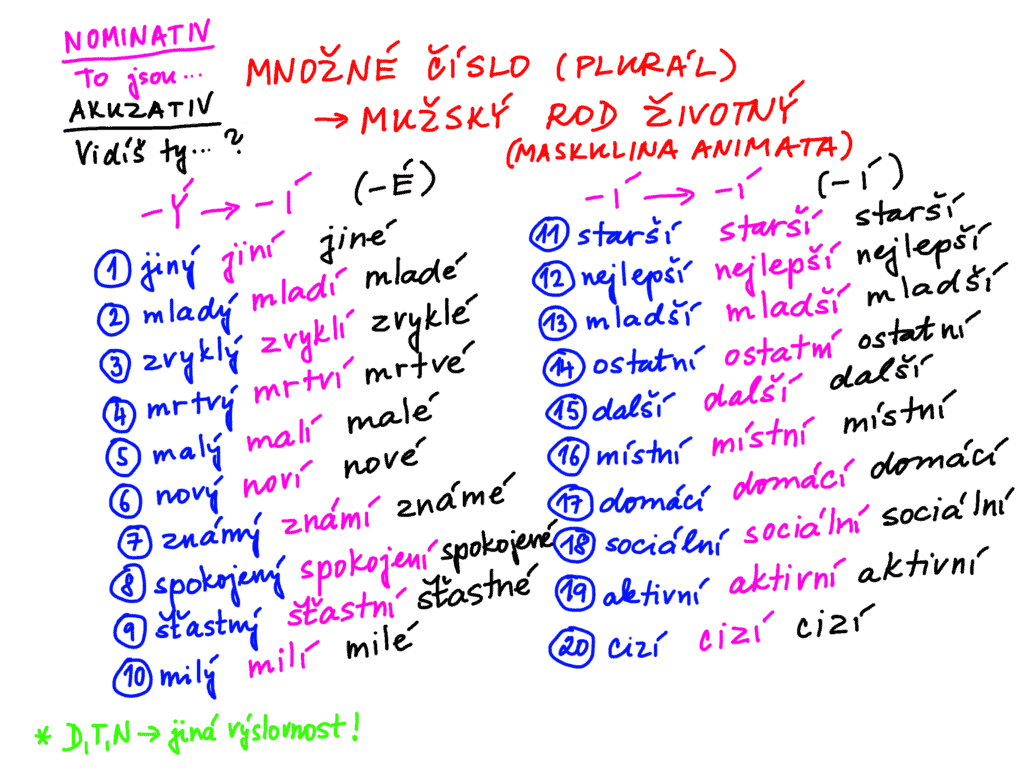 NOMINATIV
To jsou...
AKUZATIV
Vidíš ty... ?
MNOŽNÉ ČÍSLO (PLURÁL)
→ MUŽSKÝ ROD ŽIVOTNÝ
(MASKULINA ANIMATA)
-Ý → -Í (-É)
① jiný jiní jiné
② mladý mladí mladé
③ zvyklý zvyklí zvyklé
④ mrtvý mrtví mrtvé
⑤ malý malí malé
⑥ nový noví nové
⑦ známý známí známé
⑧ spokojený spokojení spokojené
⑨ šťastný šťastní šťastné
⑩ milý milí milé
-Í → -Í (-Í)
⑪ starší starší starší
⑫ nejlepší nejlepší nejlepší
⑬ mladší mladší mladší
⑭ ostatní ostatní ostatní
⑮ další další další
⑯ místní místní místní
⑰ domácí domácí domácí
⑱ sociální sociální sociální
⑲ aktivní aktivní aktivní
⑳ cizí cizí cizí
* D,T,N → jiná výslovnost!